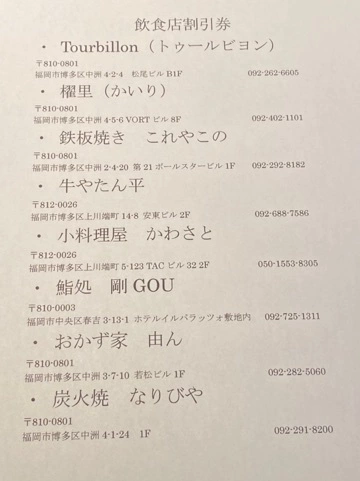 飲食店割引券
・ Tourbillon（トゥールビヨン）
〒810-0801
福岡市博多区中洲 4-2-4　松尾ビル B1F　092-262-6605
・ 櫂里（かいり）
〒810-0801
福岡市博多区中洲 4-5-6 VORT ビル 8F　092-402-1101
・ 鉄板焼き　これやこの
〒810-0801
福岡市博多区中洲 2-4-20 第 21 ポールスタービル 1F　092-292-8182
・ 牛やたん平
〒812-0026
福岡市博多区上川端町 14-8 安東ビル 2F　092-688-7586
・ 小料理屋　かわさと
〒812-0026
福岡市博多区上川端町 5-123 TAC ビル 32 2F　050-1553-8305
・ 鮨処　剛 GOU
〒810-0003
福岡市中央区春吉 3-13-1 ホテルイルパラッツォ敷地内　092-725-1311
・ おかず家　由ん
〒810-0801
福岡市博多区中洲 3-7-10 若松ビル 1F　092-282-5060
・ 炭火焼　なりびや
〒810-0801
福岡市博多区中洲 4-1-24　1F　092-291-8200